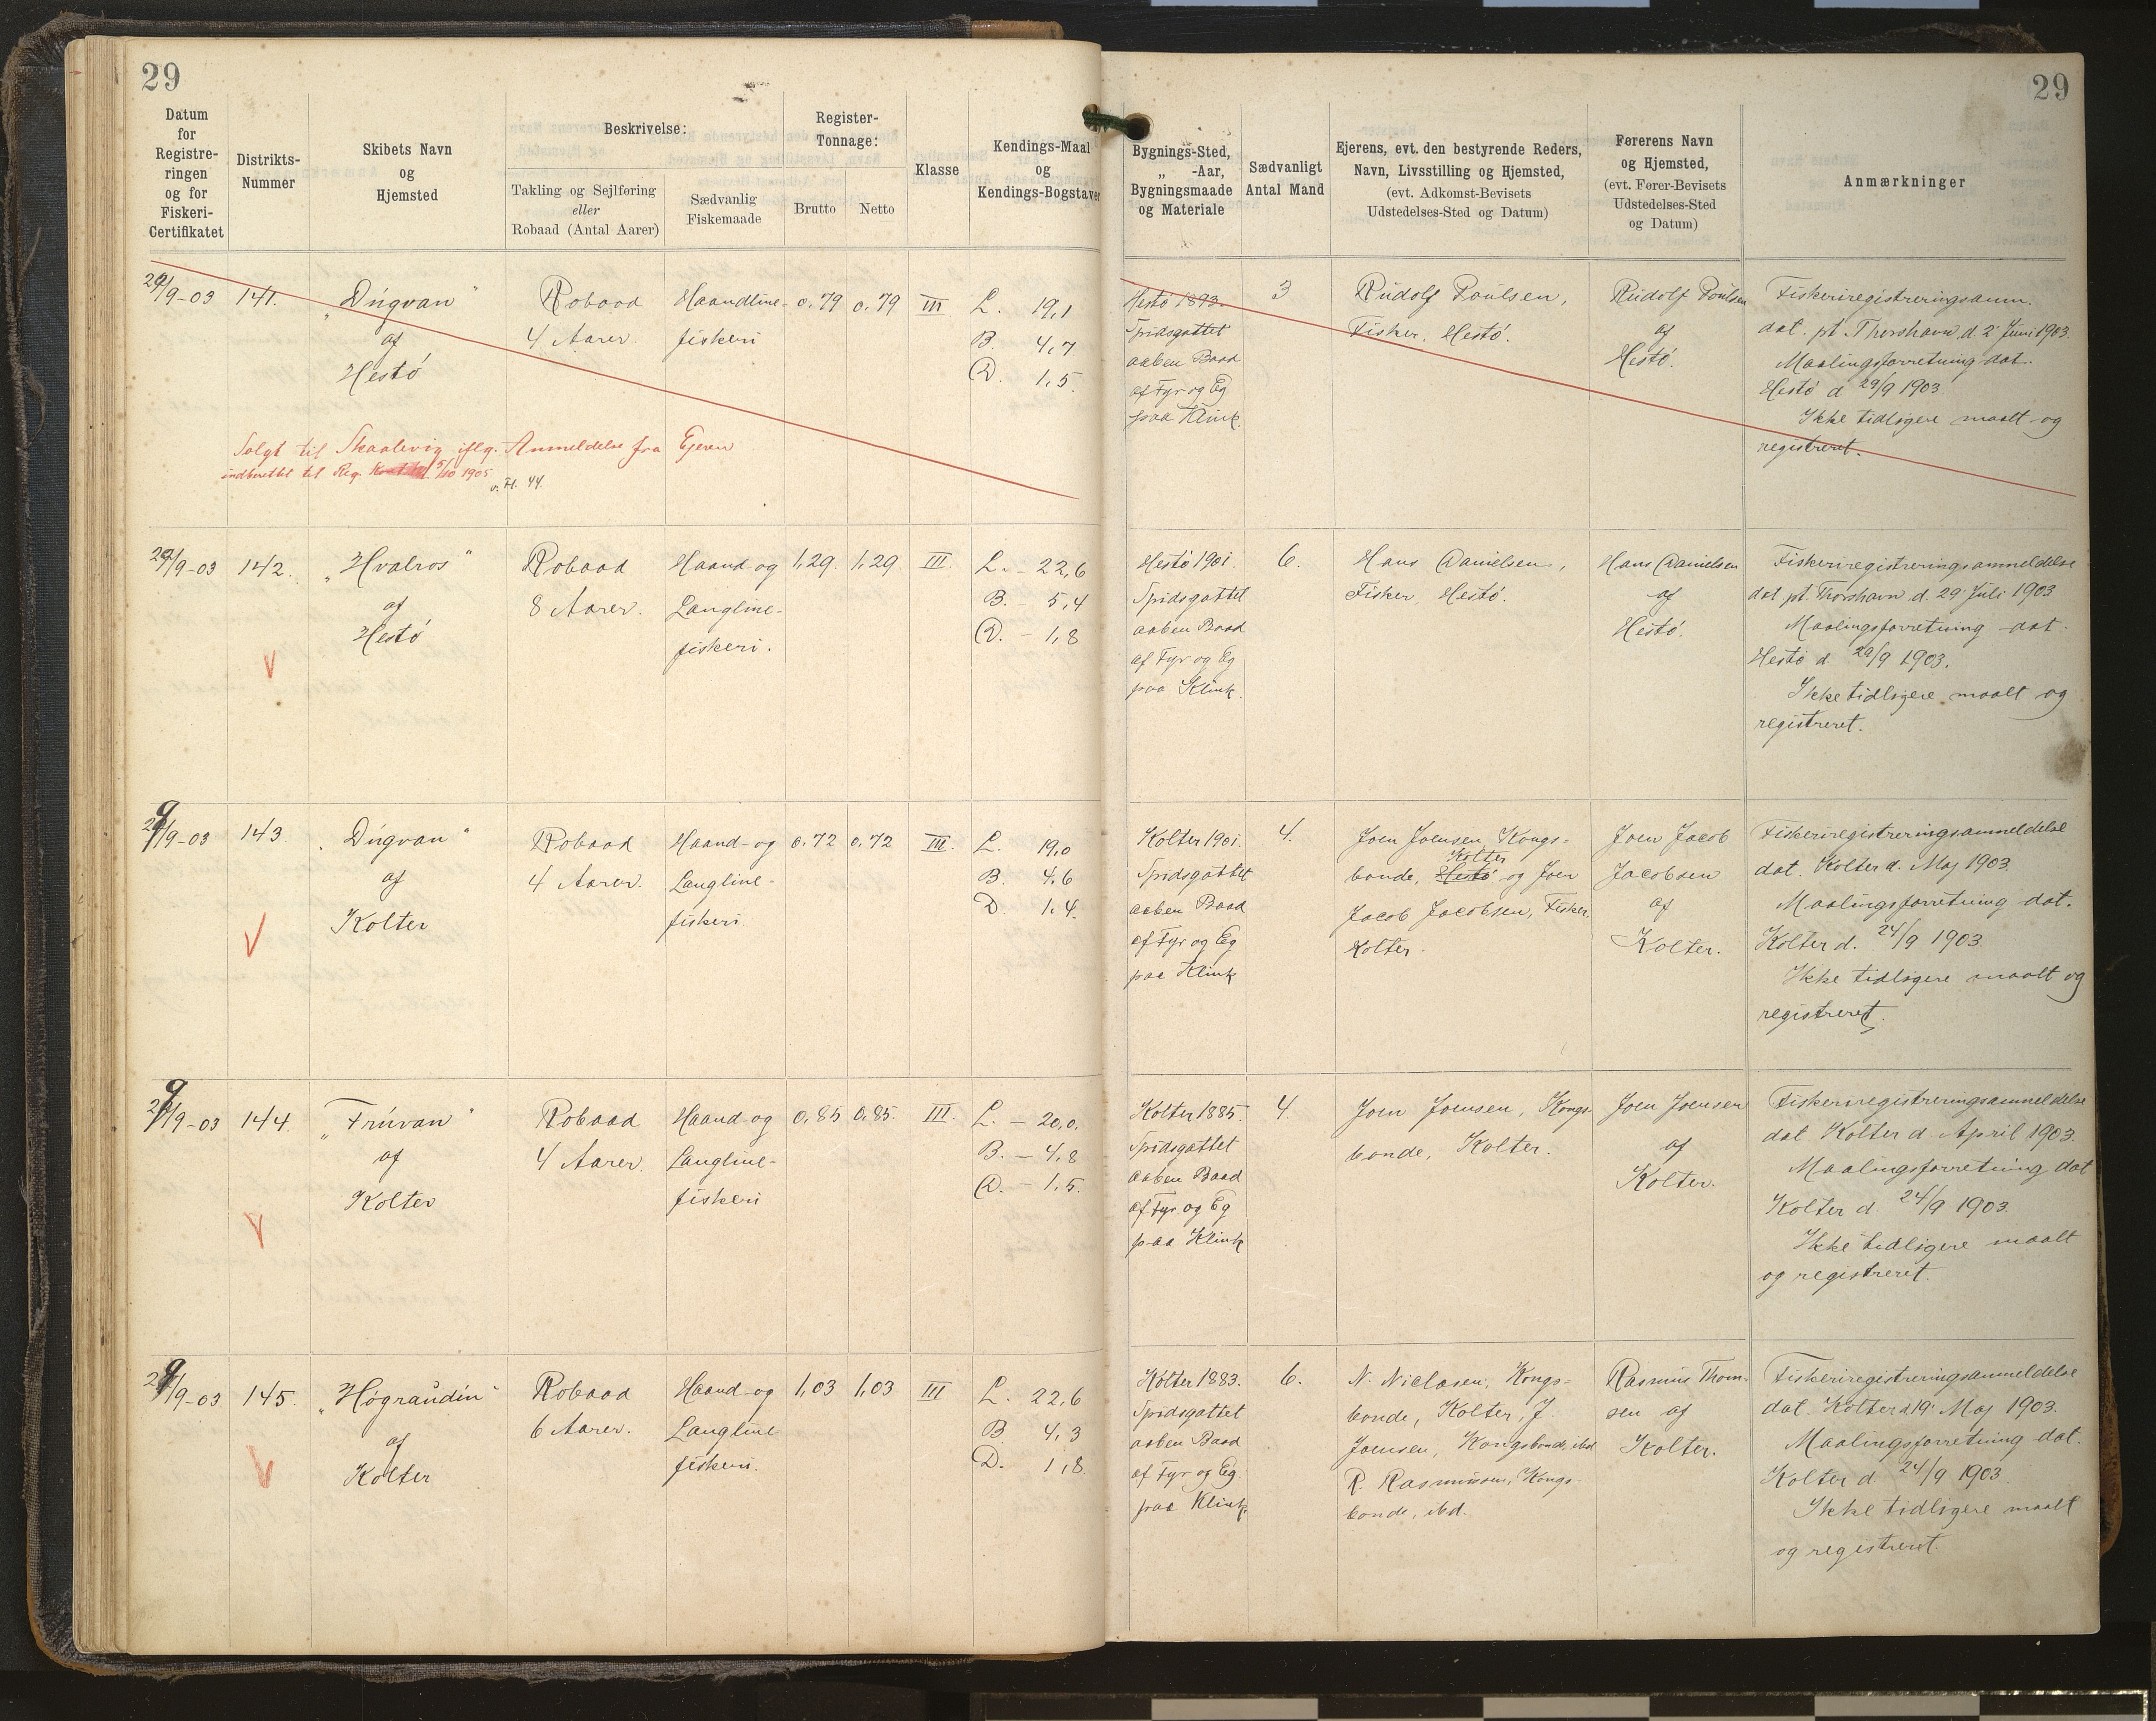 29
29
Datum
for
Registre-
ringen
og for
Fiskeri-
Certifikatet
Distrikts-
Nummer
Skibets Navn
og
Hjemsted
Beskrivelse:
Takling og Sejlføring
eller
Robaad (Antal Aarer)
Sædvanlig
Fiskemaade
Register-
Tonnage:
Brutto
Netto
Klasse
Kendings-Maal
og
Kendings-Bogstaver
Bygnings-Sted,
„ -Aar,
Bygningsmaade
og Materiale
Sædvanligt
Antal Mand
Ejerens, evt. den bestyrende Reders,
Navn, Livsstilling og Hjemsted,
(evt. Adkomst-Bevisets
Udstedelses-Sted og Datum)
Førerens Navn
og Hjemsted,
(evt. Fører-Bevisets
Udstedelses-Sted
og Datum)
Anmærkninger
29/9-03
141.
„Dúgvan"
af
Hestö
Robaad
4 Aarer.
Haandline-
fiskeri
0.79
0.79
III
L. 19,1
B. 4,7
D. 1,5.
Hestö 1893.
Spidsgattet
aaben Baad
af Fyr og Eg
paa Klink.
3
Rudolf Poulsen,
Fisker, Hestö.
Rudolf Poulsen
af
Hestö.
Fiskeriregistreringsanm.
dat. pt. Thorshavn d. 2 Juni 1903.
Maalingsforretning dat.
Hestö d 29/9 1903.
Ikke tidligere maalt og
registreret.
Solgt til Skaalevig iflg. Anmeldelse fra Ejeren
indberettet til Reg. 5/10 1905
v. Fl. 44.
29/9-03
142.
„Hvalros"
af
Hestö
Robaad
8 Aarer.
Haand- og
Langline-
fiskeri.
1,29.
1,29
III.
L. - 22,6
B. - 5,4
D. - 1,8
Hestö 1901.
Spidsgattet
aaben Baad
af Fyr og Eg
paa Klink.
6.
Hans Danielsen,
Fisker, Hestö.
Hans Danielsen
af
Hestö.
Fiskeriregistreringsanmeldelse
dat pt. Thorshavn d. 29 Juli 1903
Maalingsforretning dat.
Hestö d. 29/9 1903.
Ikke tidligere maalt og
registreret.
/9-03
143
„Dúgvan"
af
Kolter
Robaad
4 Aarer.
Haand- og
Langline-
fiskeri
0.72
0,72
III.
L. 19,0
B. 4,6
D. 1,4.
Kolter 1901.
Spidsgattet
aaben Baad
af Fyr og Eg
paa Klink
4.
Joen Joensen, Kongs-
Kolter
bonde, Hestö og Joen
Jacob Jacobsen, Fisker
Kolter.
Joen Jacob
Jacobsen
af
Kolter.
Fiskeriregistreringsanmeldelse
dat. Kolter d. Maj 1903.
Maalingsforretning dat.
Kolter d. 24/9 1903.
Ikke tidligere maalt og
registreret.
/9-03
144.
„Frúvan"
af
Kolter
Robaad
4 Aarer.
Haand- og
Langline-
fiskeri
0,85
0,85.
III.
L. - 20,0.
B. - 4,8
D. - 1,5.
Kolter 1885.
Spidsgattet
aaben Baad
af Fyr og Eg
paa Klink
4.
Joen Joensen, Kongs-
bonde, Kolter.
Joen Joensen
af
Kolter.
Fiskeriregistreringsanmeldelse
dat. Kolter d. April 1903.
Maalingsforretning dat
Kolter d. 24/9 1903.
Ikke tidligere maalt
og registreret.
/9-03
145.
„Høgraudin"
af
Kolter
Robaad
6 Aarer.
Haand- og
Langline
fiskeri.
1,03
1,03
III
L. 22,6
B 4,3
D. 1,8
Kolter 1883.
Spidsgattet
aaben Baad
af Fyr og Eg.
paa Klink.
6.
N. Niclasen, Kongs-
bonde, Kolter, J.
Joensen, Kongsbonde, ibd
R. Rasmussen, Kongs-
bonde, ibd.
Rasmus Thom-
sen af
Kolter.
Fiskeriregistreringsanmeldelse
dat. Kolter d 19' Maj 1903.
Maalingsforretning dat.
Kolter d 24/9 1903.
Ikke tidligere maalt
og registreret.